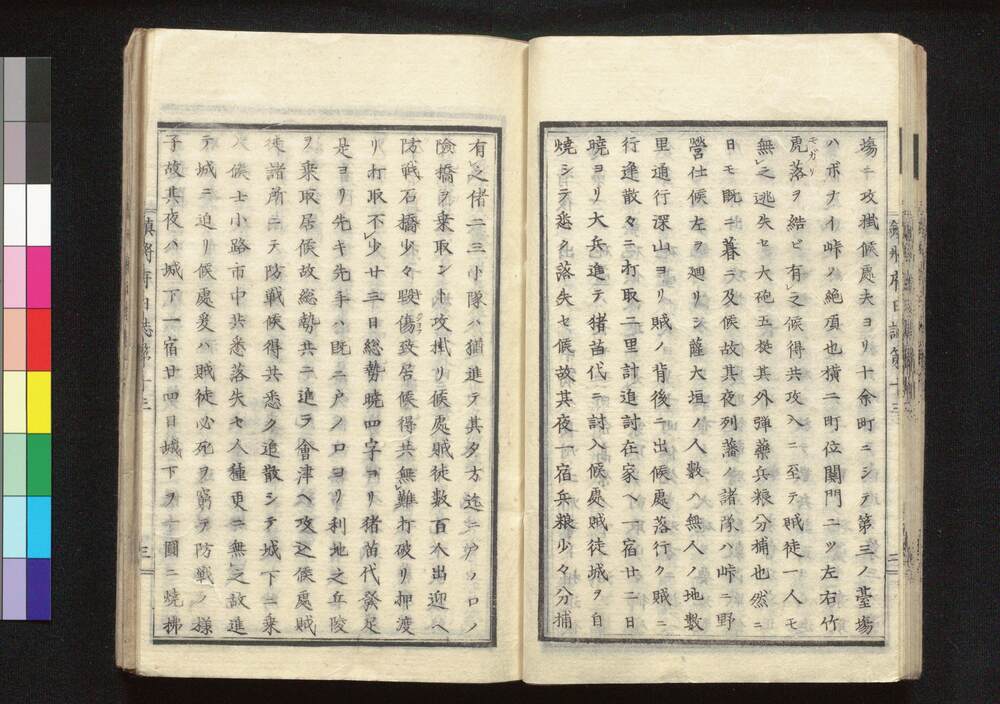 場ニ攻掛候處夫ヨリ十余町ニシテ第三ノ臺場
ハボナイ峠ノ絶頂也横二町位関門二ツ左右竹
虎落ヲ結ヒ有之候得共攻入ニ至テ賊徒一人モ
モガリ
無之逃失セ大砲五挺其外弾藥兵粮分捕也然ニ
日モ既ニ暮ニ及候故其夜列藩ノ諸隊ハ峠ニ野
營仕候左ヲ廻リシ薩大垣ノ人數ハ無人ノ地數
里通行深山ヨリ賊ノ背後ニ出候處落行ク賊ニ
行逢散々ニ打取二里計追討在家ヘ一宿廿二日
曉ヨリ大兵進テ猪苗代ニ討入候處賊徒城ヲ自
燒シテ悉ク落失セ候故其夜一宿兵粮少々分捕
有之偖二三小隊ハ猶進テ其夕方迄ニ戸ノ口ノ
險橋ヲ乗取ント攻掛リ候處賊徒數百人出迎ヘ
防戦石橋少々毀傷致居候得共無難打破リ押渡
リ打取不少廿三日総勢曉四字ヨリ猪苗代發足
是ヨリ先キ先手ハ既ニ戸ノ口ヨリ利地之丘陵
ヲ乗取居候故総勢共ニ進テ會津ヘ攻込候處賊
徒諸所ニテ防戦候得共悉ク追散シテ城下ニ乗
入候士小路市中共悉落失セ人種更ニ無之故進
テ城ニ迫リ候處爰ハ賊徒必死ヲ窮テ防戦ノ様
子故其夜ハ城下一宿廿四日城下ヲ十圓ニ燒拂
鎮將府日誌第十三
三